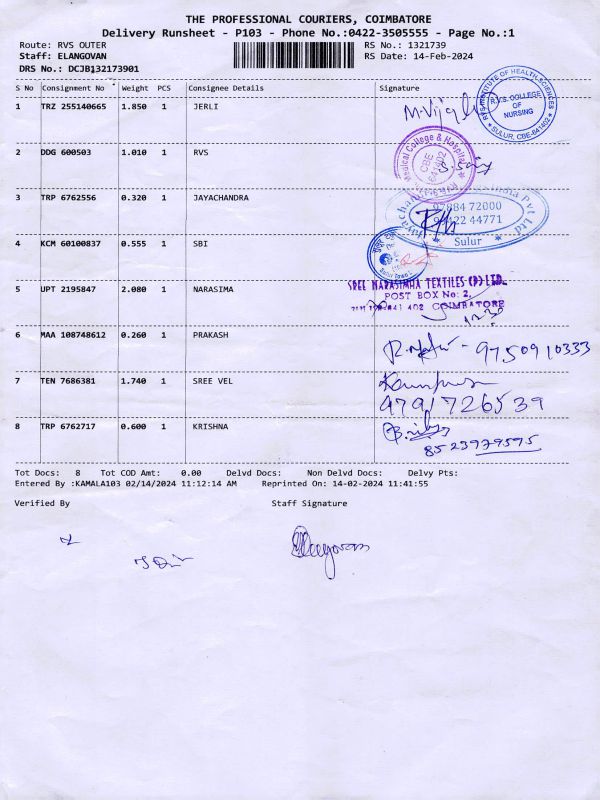 THE PROFESSIONAL COURIERS, COIMBATORE
Delivery Runsheet - P103 - Phone No.:0422-3505555 - Page No.:1
Route: RVS OUTER RS No.: 1321739
Staff: ELANGOVAN RS Date: 14-Feb-2024
DRS No.: DCJB132173901
S No Consignment No Weight PCS Consignee Details Signature
1 TRZ 255140665 1.850 1 JERLI
RVS INSTITUTE OF HEALTH SCIENCES
R.V.S. COLLEGE
OF
NURSING
* SULUR, CBE-641402 *
2 DDG 600503 1.010 1 RVS
Medical College & Hospital
CBE
641402
3 TRP 6762556 0.320 1 JAYACHANDRA
India Pvt Ltd
97884 72000
44771
* Sulur *
4 KCM 60100837 0.555 1 SBI
5 UPT 2195847 2.080 1 NARASIMA
SREE NARASIMHA TEXTILES (P) LTD.
POST BOX No: 2,
641 402 COIMBATORE
12.30
6 MAA 108748612 0.260 1 PRAKASH
9750910333
7 TEN 7686381 1.740 1 SREE VEL
9791726539
8 TRP 6762717 0.600 1 KRISHNA
8523979595
Tot Docs: 8 Tot COD Amt: 0.00 Delvd Docs: Non Delvd Docs: Delvy Pts:
Entered By :KAMALA103 02/14/2024 11:12:14 AM Reprinted On: 14-02-2024 11:41:55
Verified By Staff Signature
Elangovan